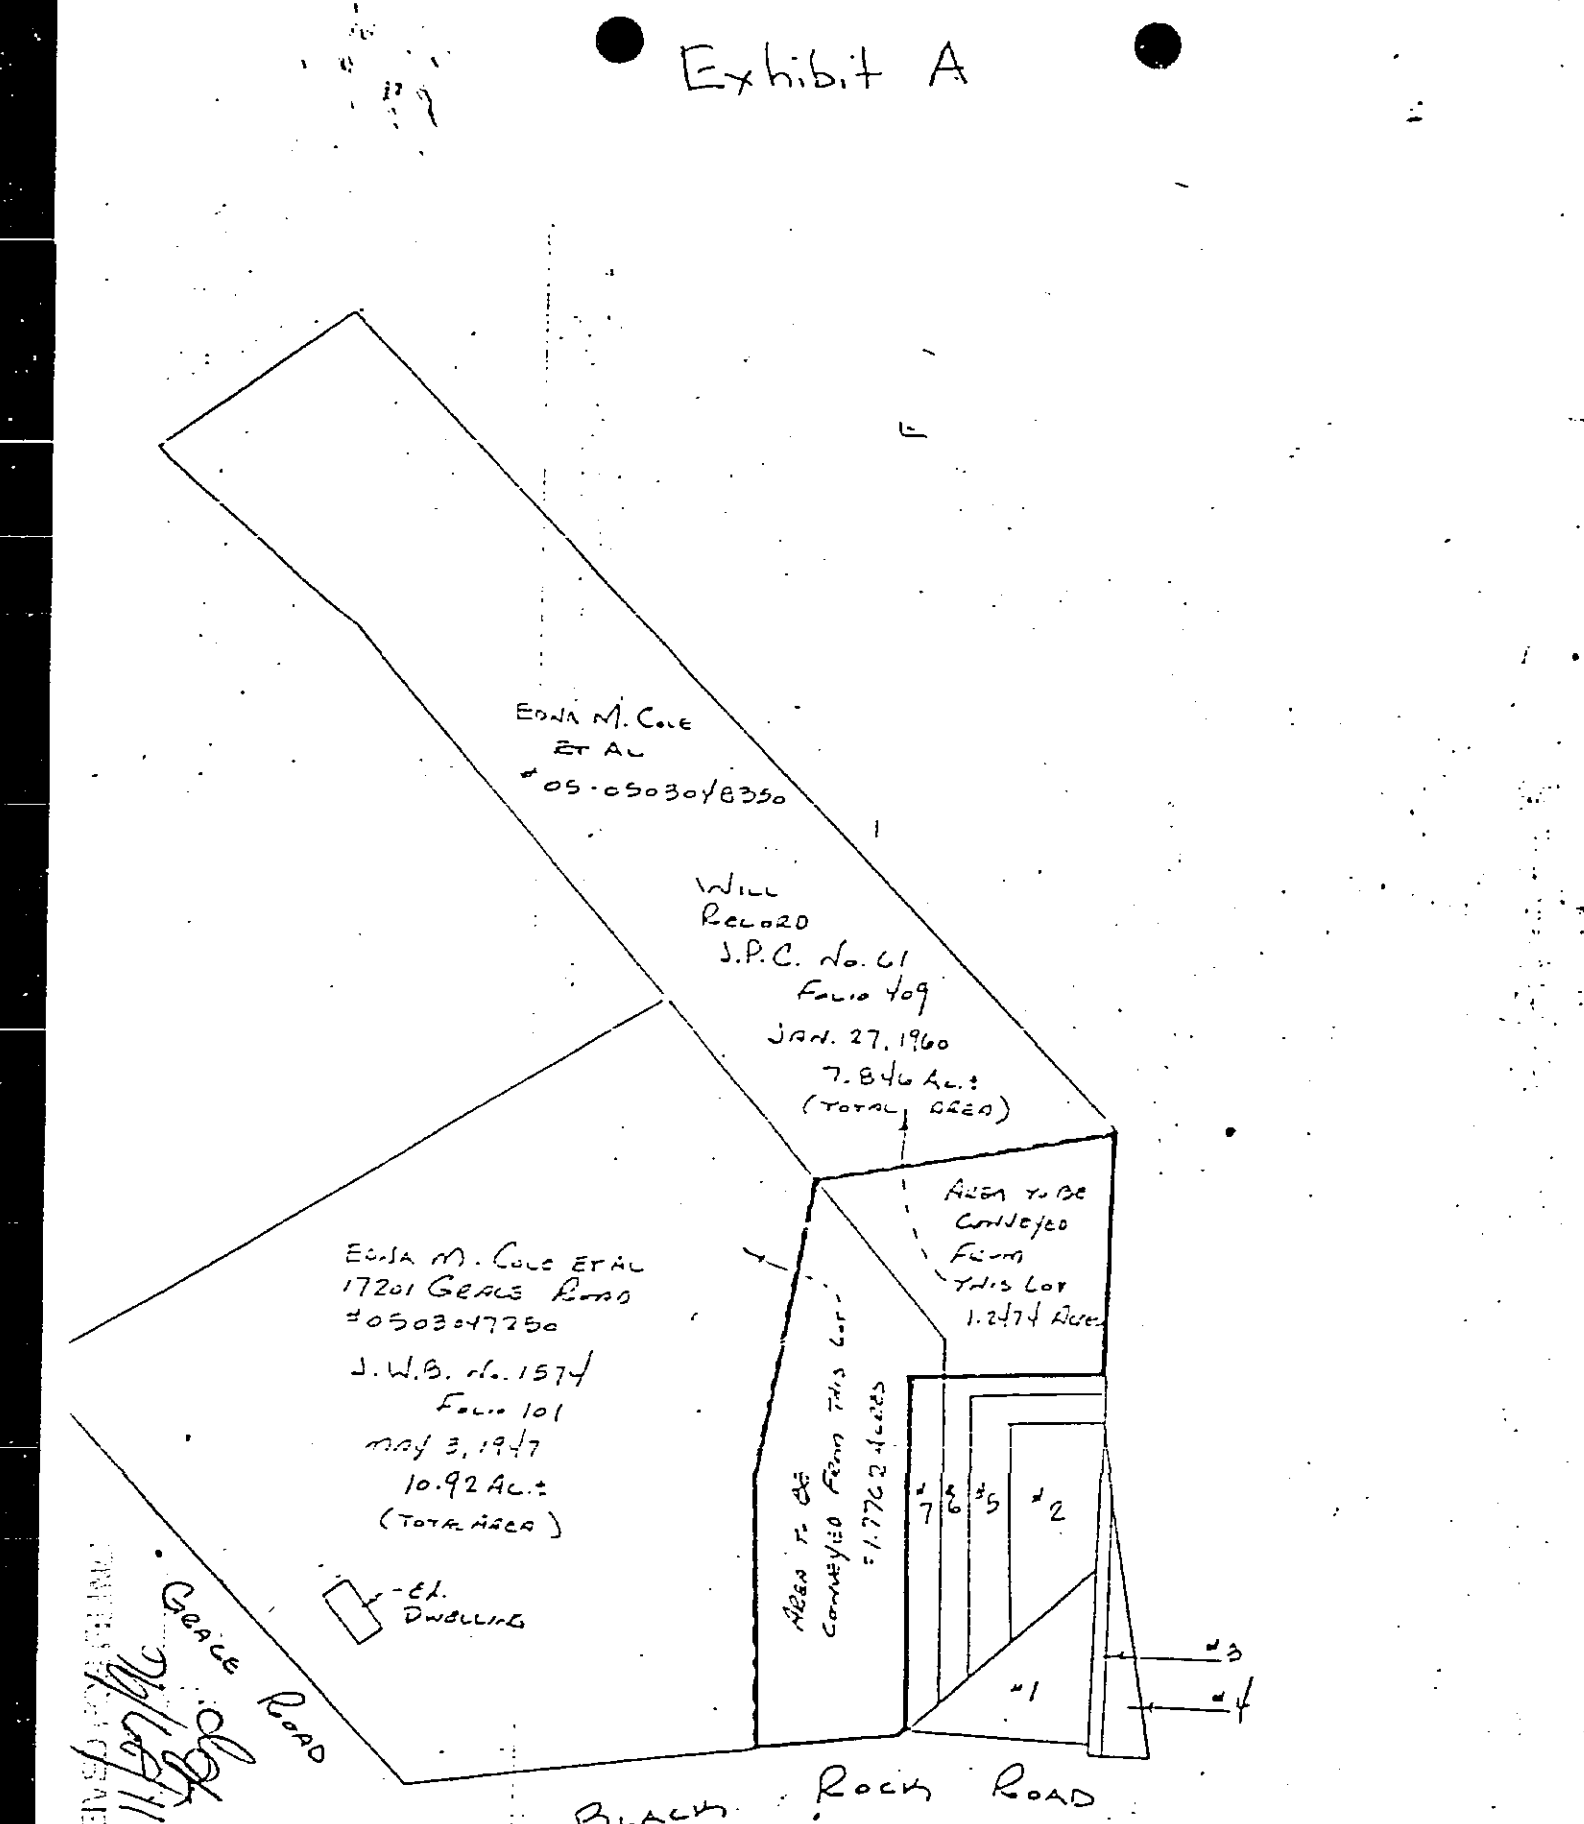 Exhibit A
EDNA M. COLE
ET AL
#05-0503048350
WILL
RECORD
J.P.C. No. 61
FOLIO 409
JAN. 27, 1960
7.846 AC.±
(TOTAL AREA)
AREA TO BE
CONVEYED
FROM
THIS LOT
1.2474 ACRES
EDNA M. COLE ET AL
17201 GRACE ROAD
#0503047250
J.W.B. No. 1574
FOLIO 101
MAY 3, 1947
10.92 AC.±
(TOTAL AREA)
EX.
DWELLING
AREA TO BE
CONVEYED FROM THIS LOT
=1.7762 ACRES
#7 #6 #5 #2
#1
#3
#4
GRACE ROAD
BLACK ROCK ROAD